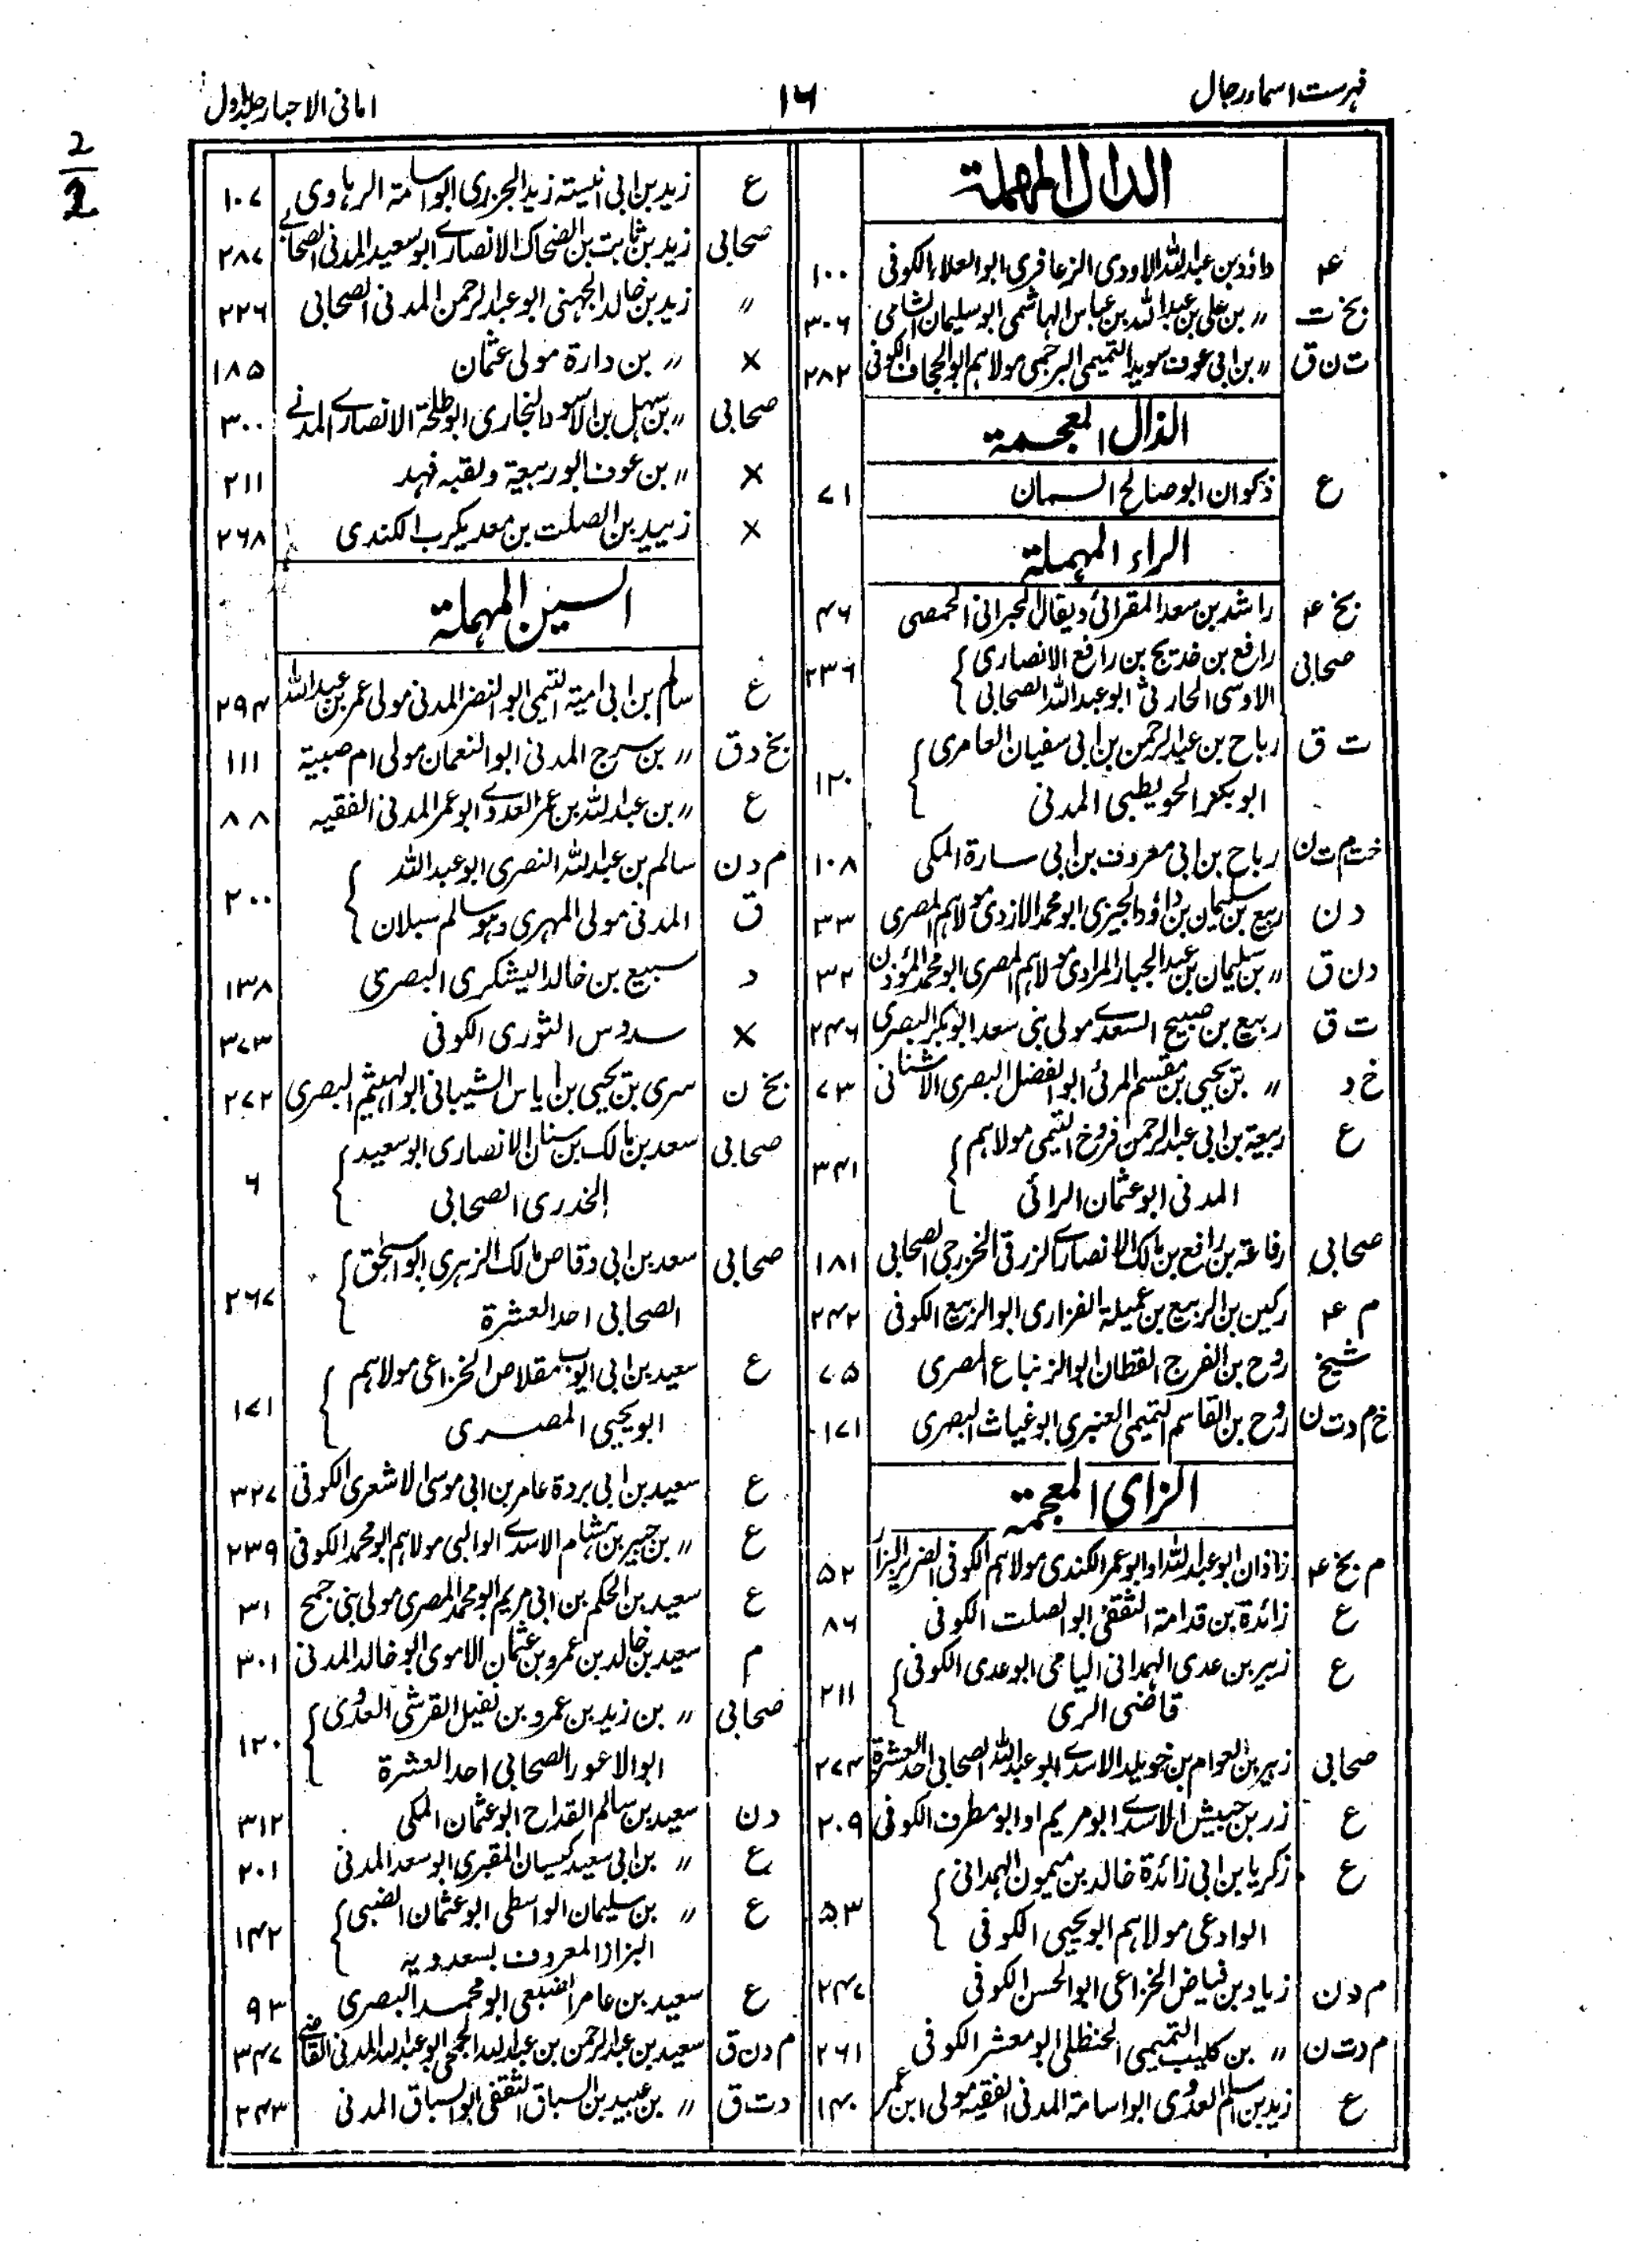 فہرست اسماء رجال
١٦
امانی الاحبار جلد اول
2
2
الدال المہملة
۴ع داؤد بن عبداللہ الاودی الزعافری ابو العلاء الکوفی ١٠٠
بخ ت 〃 بن علی بن عبداللہ بن عباس الہاشمی ابو سلیمان الشامی ٣٠٦
ت ن ق 〃 بن ابی عوف سوید التمیمی البرجمی مولاہم ابو الجحاف الکوفی ٢٨٢
الذال المعجمة
ع ذکوان ابو صالح السمان ٧١
الراء المہملة
بخ ۴ راشد بن سعد المقرائی ویقال الحبرانی الحمصی ۴٦
صحابی رافع بن خدیج بن رافع الانصاری ٢٣٦
الاوسی الحارثی ابو عبداللہ الصحابی
ت ق رباح بن عبدالرحمن بن ابی سفیان العامری ١٢٠
ابو بکر الحویطبی المدنی
خت م ت ن رباح بن ابی معروف بن ابی سارة المکی ١٠٨
د ن ربیع بن سلیمان بن داؤد الجیزی ابو محمد الازدی مولاہم المصری ٣٣
د ن ق 〃 بن سلیمان بن عبدالجبار المرادی مولاہم المصری ابو محمد المؤذن ٣٢
ت ق ربیع بن صبیح السعدی مولی بنی سعد ابو بکر البصری ٢۴٦
خ د 〃 بن یحیی بن مقسم المرئی ابو الفضل البصری الاشنانی ٧٣
ع ربیعة بن ابی عبدالرحمن فروخ التیمی مولاہم ٣۴١
المدنی ابو عثمان الرائی
صحابی رفاعة بن رافع بن مالک الانصاری الزرقی الخزرجی الصحابی ١٨١
م ۴ رکین بن الربیع بن عمیلة الفزاری ابو الربیع الکوفی ٢۴٢
شیخ روح بن الفرج القطان ابو الزنباع المصری ٧۵
خ م د ت ن روح بن القاسم التمیمی العنبری ابو غیاث البصری ١٧١
الزای المعجمة
م بخ ۴ زاذان ابو عبداللہ او ابو عمر الکندی مولاہم الکوفی الضریر البزار ۵٢
ع زائدة بن قدامة الثقفی ابو الصلت الکوفی ٨٦
ع زبیر بن عدی الہمدانی الیامی ابو عدی الکوفی ٢١١
قاضی الری
صحابی زبیر بن العوام بن خویلد الاسدی ابو عبداللہ الصحابی احد العشرة ٢٧۴
ع زر بن حبیش الاسدی ابو مریم او ابو مطرف الکوفی ٢٠٩
ع زکریا بن ابی زائدة خالد بن میمون الہمدانی ۵٣
الوادعی مولاہم ابو یحیی الکوفی
م د ن زیاد بن فیاض الخزاعی ابو الحسن الکوفی ٢۴٧
م د ت ن 〃 بن کلیب التمیمی الحنظلی ابو معشر الکوفی ٢٦١
ع زید بن اسلم العدوی ابو اسامة المدنی الفقیہ مولی ابن عمر ١۴٠
ع زید بن ابی انیسة زید الجزری ابو اسامة الرہاوی ١٠٧
صحابی زید بن ثابت بن الضحاک الانصاری ابو سعید المدنی الصحابی ٢٨٧
〃 زید بن خالد الجہنی ابو عبدالرحمن المدنی الصحابی ٢٢٦
× 〃 بن دارة مولی عثمان ١٨۵
صحابی 〃 بن سہل بن الاسود النجاری ابو طلحة الانصاری المدنی ٣٠٠
× 〃 بن عوف ابو ربیعة ولقبہ فہد ٢١١
× زیید بن الصلت بن معدیکرب الکندی ٢٦٨
السین المہملة
ع سالم بن ابی امیة التیمی ابو النضر المدنی مولی عمر بن عبیداللہ ٢٩۴
بخ د ق 〃 بن سرج المدنی ابو النعمان مولی ام صبیة ١١١
ع 〃 بن عبداللہ بن عمر العدوی ابو عمر المدنی الفقیہ ٨٨
م د ن سالم بن عبداللہ النصری ابو عبداللہ ٢٠٠
ق المدنی مولی المہری وہو سالم سبلان
د سبیع بن خالد الیشکری البصری ١٣٨
× سدوس الثوری الکوفی ٣٧٣
بخ ن سری بن یحیی بن ایاس الشیبانی ابو الہیثم البصری ٢٧٢
صحابی سعد بن مالک بن سنان الانصاری ابو سعید ٦
الخدری الصحابی
صحابی سعد بن ابی وقاص مالک الزہری ابو اسحٰق ٢٦٧
الصحابی احد العشرة
ع سعید بن ابی ایوب مقلاص الخزاعی مولاہم ١٧١
ابو یحیی المصری
ع سعید بن ابی بردة عامر بن ابی موسی الاشعری الکوفی ٣٢٧
ع 〃 بن جبیر بن ہشام الاسدی الوالبی مولاہم ابو محمد الکوفی ٢٣٩
ع سعید بن الحکم بن ابی مریم ابو محمد المصری مولی بنی جمح ٣١
م سعید بن خالد بن عمرو بن عثمان الاموی ابو خالد المدنی ٣٠١
صحابی 〃 بن زید بن عمرو بن نفیل القرشی العدوی ١٢٠
ابو الاعور الصحابی احد العشرة
د ن سعید بن سالم القداح ابو عثمان المکی ٣١٢
ع 〃 بن ابی سعید کیسان المقبری ابو سعد المدنی ٢٠١
ع 〃 بن سلیمان الواسطی ابو عثمان الضبی ١۴٢
البزاز المعروف بسعدویہ
ع سعید بن عامر الضبعی ابو محمد البصری ٩٣
م د ن ق سعید بن عبدالرحمن بن عبداللہ الجمحی ابو عبداللہ المدنی القاضی ٣۴٧
د ت ق 〃 بن عبید بن السباق الثقفی ابو السباق المدنی ٢۴٣